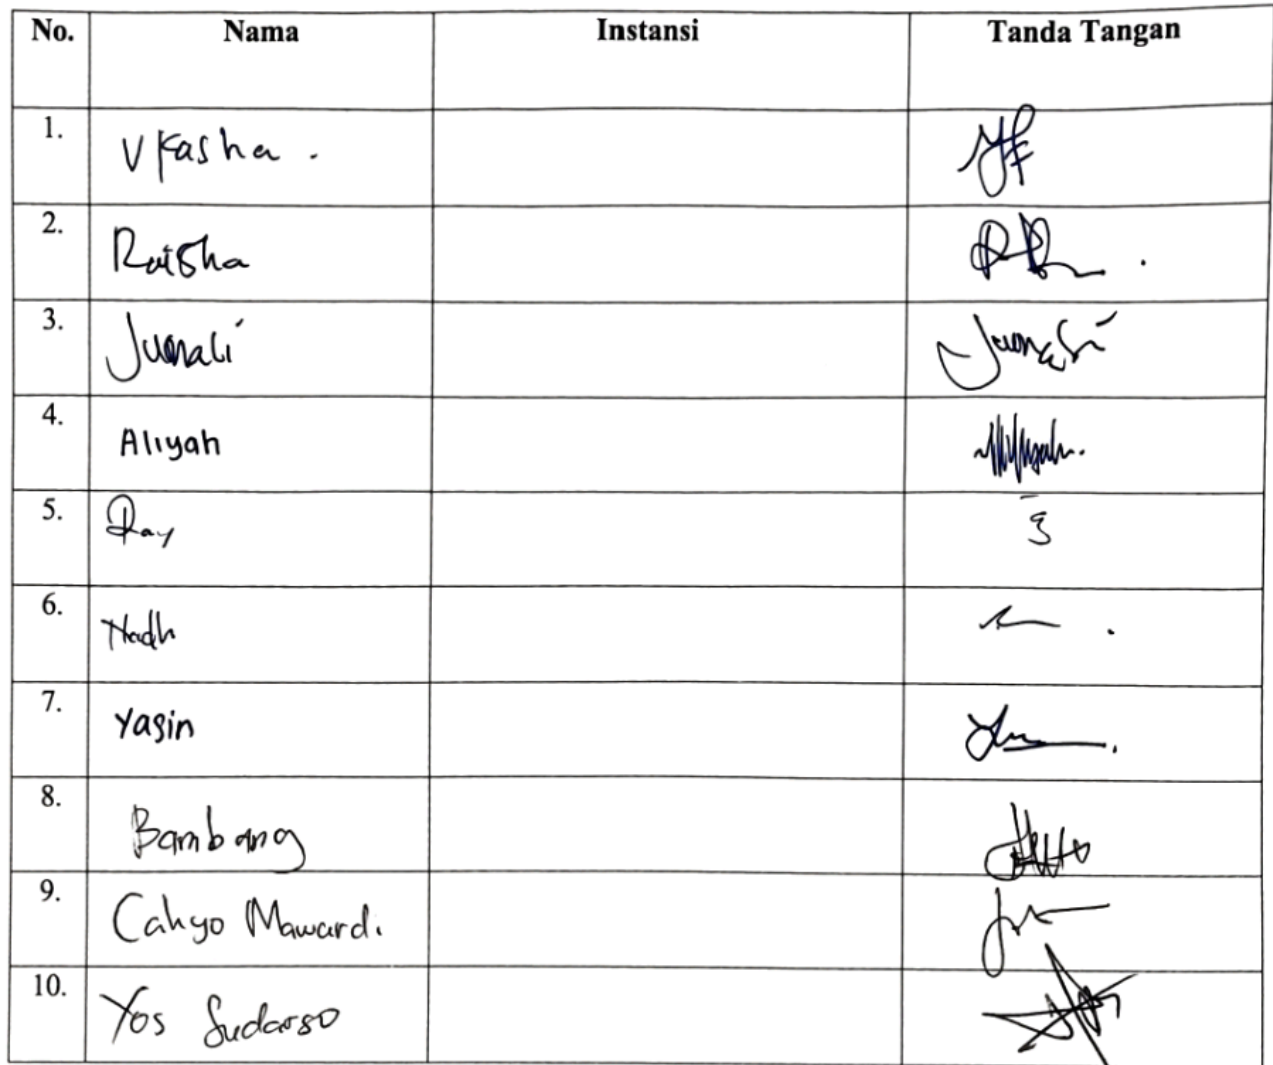 No. Nama Instansi Tanda Tangan
1. Vkasha .
2. Raisha
3. Jumali Jumali
4. Aliyah
5. Ray
6. Nadh
7. Yasin
8. Bambang
9. Cahyo Mawardi
10. Yos Sudarso